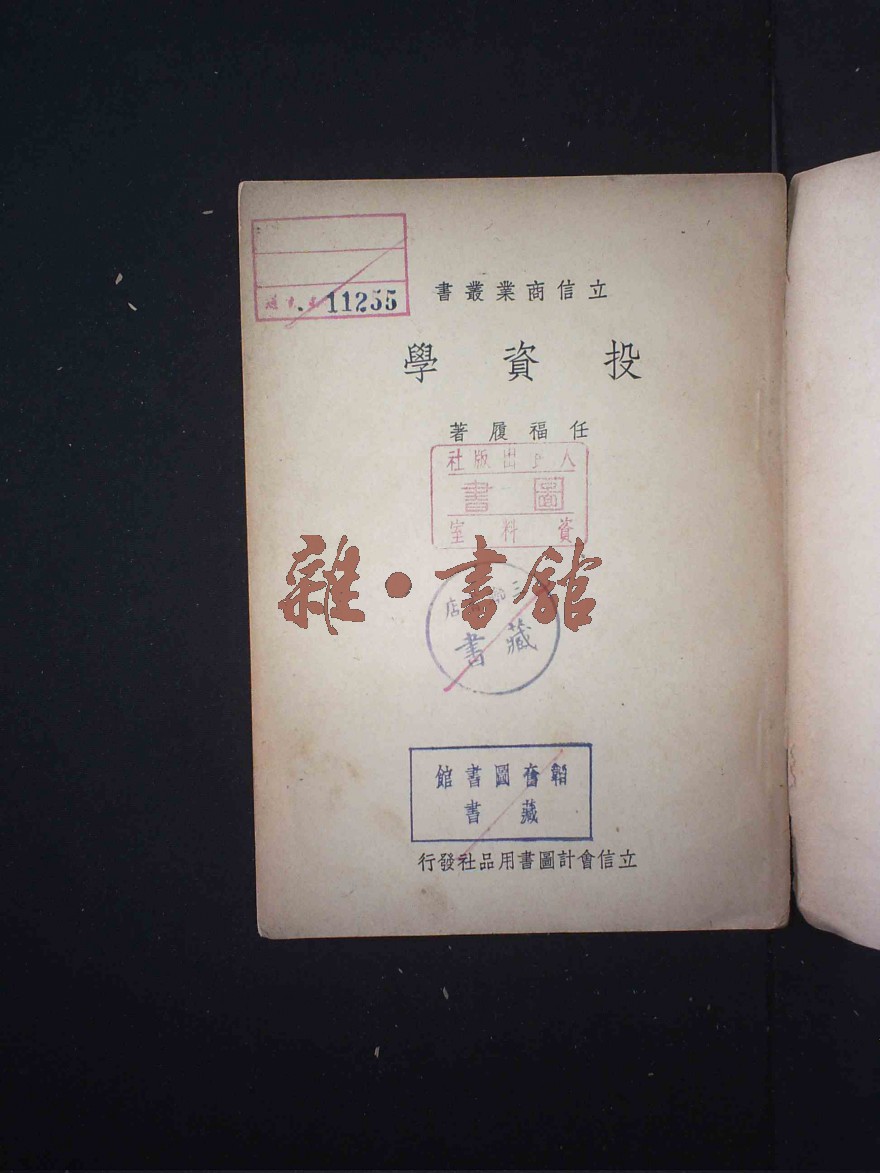 11255
立信商業叢書
投資學
任福履著
人民出版社
圖書
資料室
雜·書館
店
藏書
韜奮圖書館
藏書
立信會計圖書用品社發行